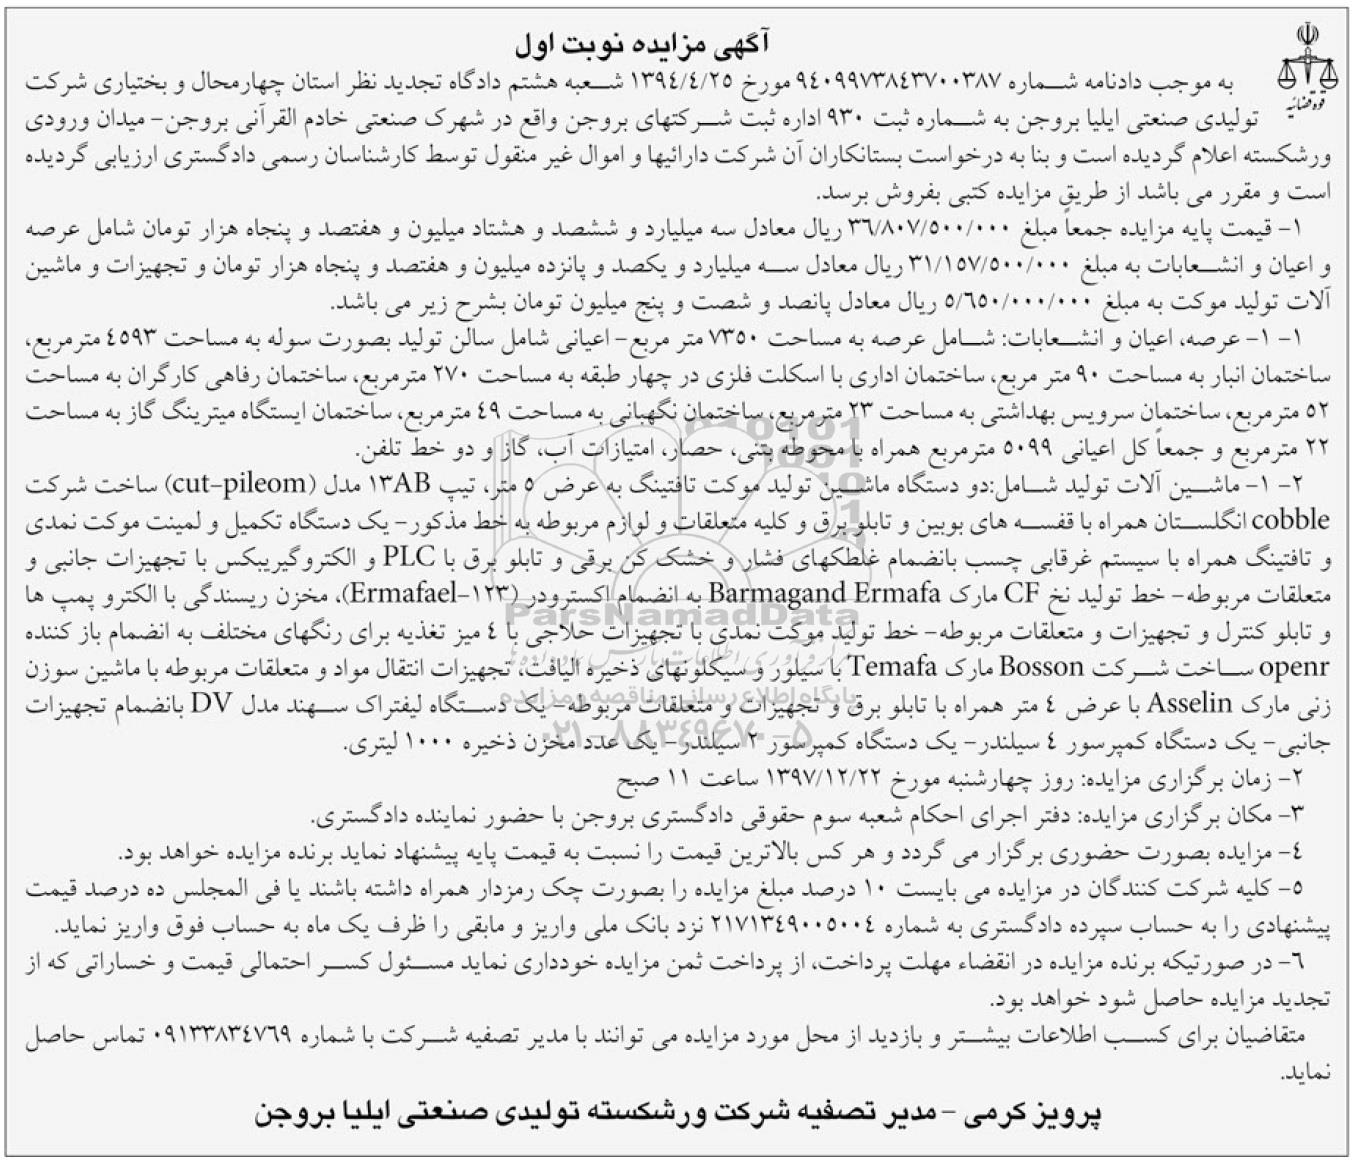 آگهی مزایده نوبت اول
قوه قضائیه
به موجب دادنامه شماره ۹٤۰۹۹۷۳۸٤۳۷۰۰۳۸۷ مورخ ۱۳۹٤/٤/۲٥ شعبه هشتم دادگاه تجدید نظر استان چهارمحال و بختیاری شرکت
تولیدی صنعتی ایلیا بروجن به شماره ثبت ۹۳۰ اداره ثبت شرکتهای بروجن واقع در شهرک صنعتی خادم القرآنی بروجن– میدان ورودی
ورشکسته اعلام گردیده است و بنا به درخواست بستانکاران آن شرکت دارائیها و اموال غیر منقول توسط کارشناسان رسمی دادگستری ارزیابی گردیده
است و مقرر می باشد از طریق مزایده کتبی بفروش برسد.
۱– قیمت پایه مزایده جمعاً مبلغ ۳٦/۸۰۷/٥۰۰/۰۰۰ ریال معادل سه میلیارد و ششصد و هشتاد میلیون و هفتصد و پنجاه هزار تومان شامل عرصه
و اعیان و انشعابات به مبلغ ۳۱/۱٥۷/٥۰۰/۰۰۰ ریال معادل سه میلیارد و یکصد و پانزده میلیون و هفتصد و پنجاه هزار تومان و تجهیزات و ماشین
آلات تولید موکت به مبلغ ٥/٦٥۰/۰۰۰/۰۰۰ ریال معادل پانصد و شصت و پنج میلیون تومان بشرح زیر می باشد.
۱– ۱– عرصه، اعیان و انشعابات: شامل عرصه به مساحت ۷۳٥۰ متر مربع– اعیانی شامل سالن تولید بصورت سوله به مساحت ٤٥۹۳ مترمربع،
ساختمان انبار به مساحت ۹۰ متر مربع، ساختمان اداری با اسکلت فلزی در چهار طبقه به مساحت ۲۷۰ مترمربع، ساختمان رفاهی کارگران به مساحت
٥۲ مترمربع، ساختمان سرویس بهداشتی به مساحت ۲۳ مترمربع، ساختمان نگهبانی به مساحت ٤۹ مترمربع، ساختمان ایستگاه میترینگ گاز به مساحت
۲۲ مترمربع و جمعاً کل اعیانی ٥۰۹۹ مترمربع همراه با محوطه بتنی، حصار، امتیازات آب، گاز و دو خط تلفن.
۲– ۱– ماشین آلات تولید شامل:دو دستگاه ماشین تولید موکت تافتینگ به عرض ٥ متر، تیپ ۱۳AB مدل (cut-pileom) ساخت شرکت
cobble انگلستان همراه با قفسه های بوبین و تابلو برق و کلیه متعلقات و لوازم مربوطه به خط مذکور– یک دستگاه تکمیل و لمینت موکت نمدی
و تافتینگ همراه با سیستم غرقابی چسب بانضمام غلطکهای فشار و خشک کن برقی و تابلو برق با PLC و الکتروگیربیکس با تجهیزات جانبی و
متعلقات مربوطه– خط تولید نخ CF مارک Barmagand Ermafa به انضمام اکسترودر (Ermafael-۱۲۳)، مخزن ریسندگی با الکترو پمپ ها
و تابلو کنترل و تجهیزات و متعلقات مربوطه– خط تولید موکت نمدی با تجهیزات حلاجی با ٤ میز تغذیه برای رنگهای مختلف به انضمام باز کننده
openr ساخت شرکت Bosson مارک Temafa با سیلور و سیکلونهای ذخیره الیافت، تجهیزات انتقال مواد و متعلقات مربوطه با ماشین سوزن
زنی مارک Asselin با عرض ٤ متر همراه با تابلو برق و تجهیزات و متعلقات مربوطه– یک دستگاه لیفتراک سهند مدل DV بانضمام تجهیزات
جانبی– یک دستگاه کمپرسور ٤ سیلندر– یک دستگاه کمپرسور ۲ سیلندر– یک عدد مخزن ذخیره ۱۰۰۰ لیتری.
۲– زمان برگزاری مزایده: روز چهارشنبه مورخ ۱۳۹۷/۱۲/۲۲ ساعت ۱۱ صبح
۳– مکان برگزاری مزایده: دفتر اجرای احکام شعبه سوم حقوقی دادگستری بروجن با حضور نماینده دادگستری.
٤– مزایده بصورت حضوری برگزار می گردد و هر کس بالاترین قیمت را نسبت به قیمت پایه پیشنهاد نماید برنده مزایده خواهد بود.
٥– کلیه شرکت کنندگان در مزایده می بایست ۱۰ درصد مبلغ مزایده را بصورت چک رمزدار همراه داشته باشند یا فی المجلس ده درصد قیمت
پیشنهادی را به حساب سپرده دادگستری به شماره ۲۱۷۱۳٤۹۰۰٥۰۰٤ نزد بانک ملی واریز و مابقی را ظرف یک ماه به حساب فوق واریز نماید.
٦– در صورتیکه برنده مزایده در انقضاء مهلت پرداخت، از پرداخت ثمن مزایده خودداری نماید مسئول کسر احتمالی قیمت و خساراتی که از
تجدید مزایده حاصل شود خواهد بود.
متقاضیان برای کسب اطلاعات بیشتر و بازدید از محل مورد مزایده می توانند با مدیر تصفیه شرکت با شماره ۰۹۱۳۳۸۳٤۷٦۹ تماس حاصل
نماید.
پرویز کرمی – مدیر تصفیه شرکت ورشکسته تولیدی صنعتی ایلیا بروجن
ParsNamadData
پایگاه اطلاع رسانی مناقصه و مزایده
۰۲۱–۸۸۳۴۹۶۷۰–۵